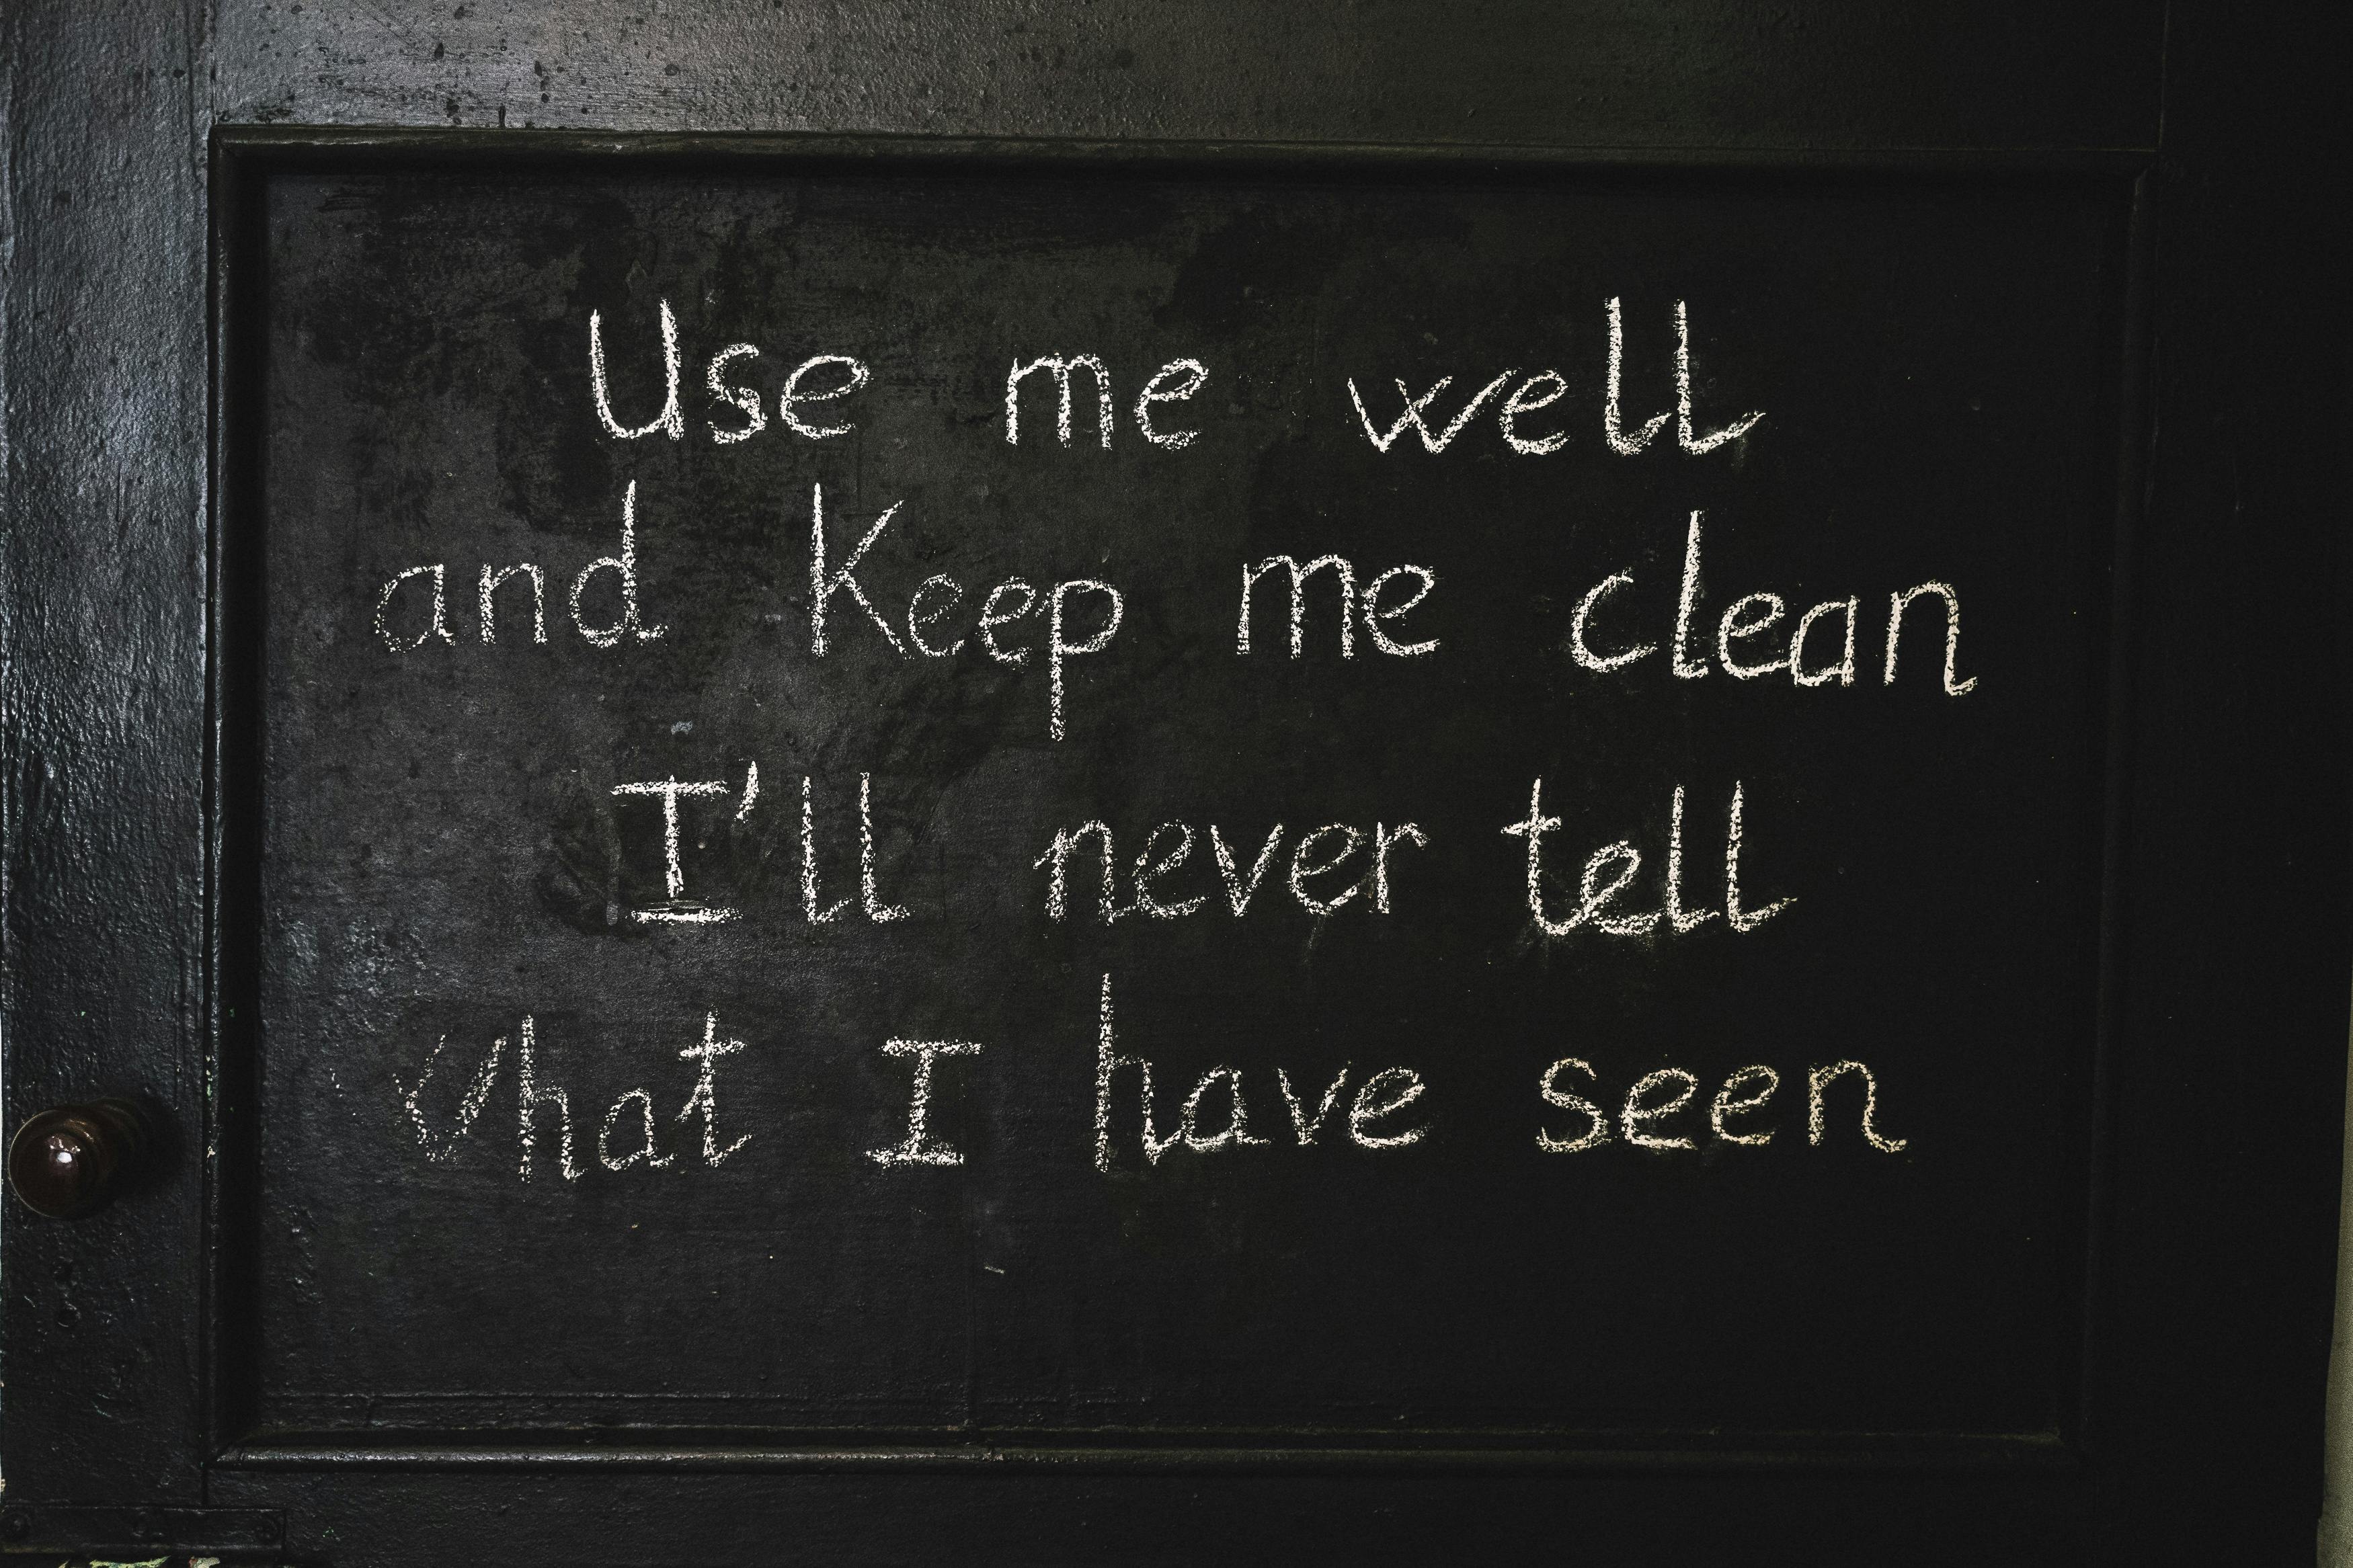 Use me well
and Keep me clean
I'll never tell
What I have seen